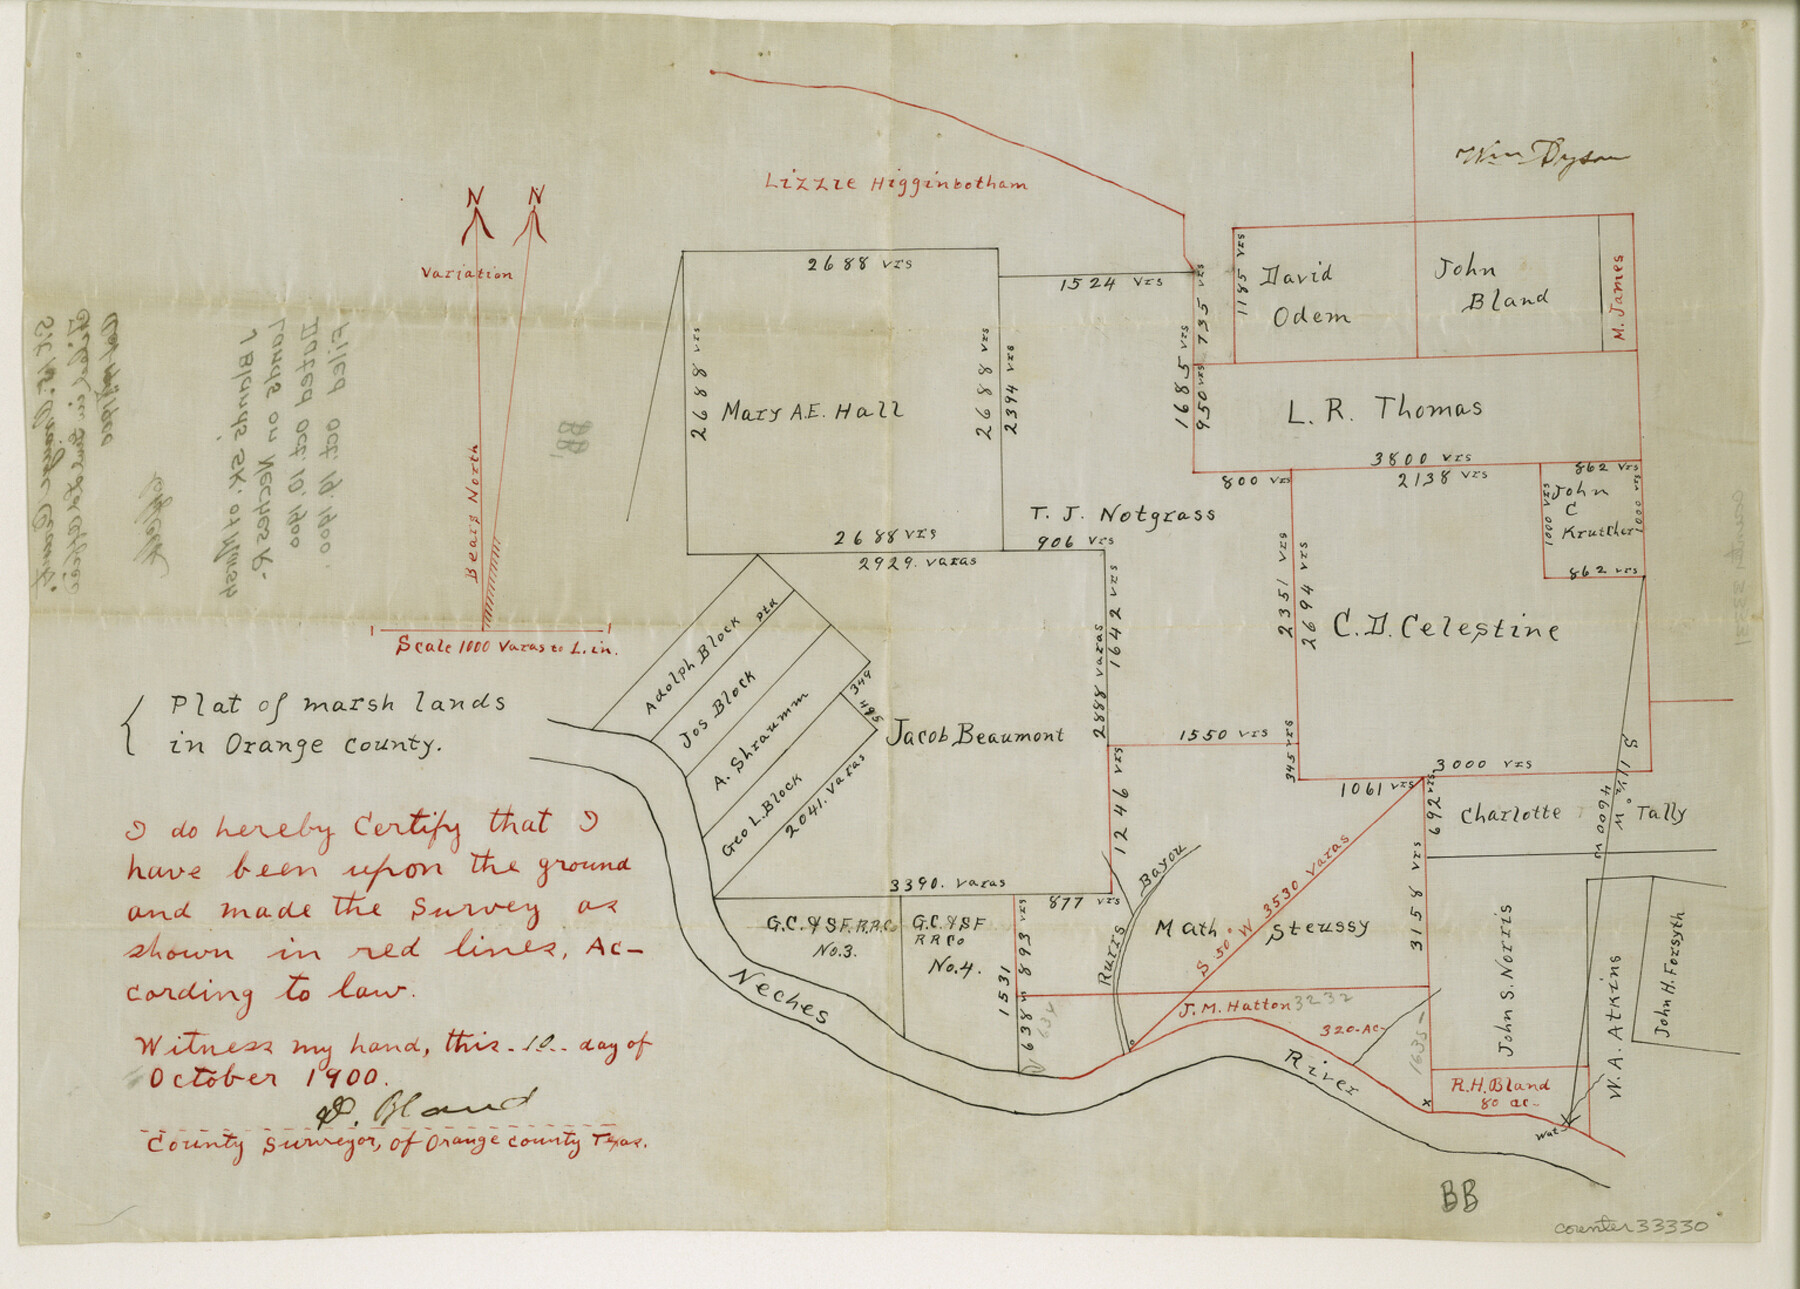 Wm Dyson
Lizzie Higginbotham
N N
Variation
Bears North
Scale 1000 Varas to 1. in.
Plat of marsh lands
in Orange county.
I do hereby Certify that I
have been upon the ground
and made the Survey as
shown in red lines, Ac-
cording to law.
Witness my hand, this. 10.. day of
October 1900.
D. Bland
County Surveyor, of Orange county Texas.
2688 vrs
2688 vrs
2688 vrs
2394 vrs
Mary A.E. Hall
2688 vrs
2929. varas
1524 vrs
1685 vrs
735 vrs
950 vrs
1185 vrs
David
Odem
John
Bland
M. James
L. R. Thomas
3800 vrs
800 vrs
2138 vrs
862 vrs
John
C
Krutcher
1000 vrs
1000 vrs
862 vrs
T. J. Notgrass
906 vrs
1642 vrs
2888 varas
2351 vrs
2694 vrs
C. D. Celestine
Adolph Block
Jos Block
A. Shraumm
Geo L. Block
349
495
2041. varas
Jacob Beaumont
1550 vrs
345 vrs
1246 vrs
1061 vrs
3000 vrs
692 vrs
Charlotte Tally
S 11½° W
4600 vs
3390. varas
877 vrs
G.C. & S F. R.R. Co
No.3.
G.C. & S F
R R Co
No.4.
893 vrs
1531
638
634
Bayou
Math Steussy
S 50° W 3530 varas
3158 vrs
J. M. Hatton 3232
320-Ac-
1635-
John S. Norris
W. A. Atkins
John H. Forsyth
R.H. Bland
80 ac-
x
Neches
River
BB
counter 33330
Filed Oct 19. 1900.
Dated Oct. 10. 1900
Lands on Neches R.
BB